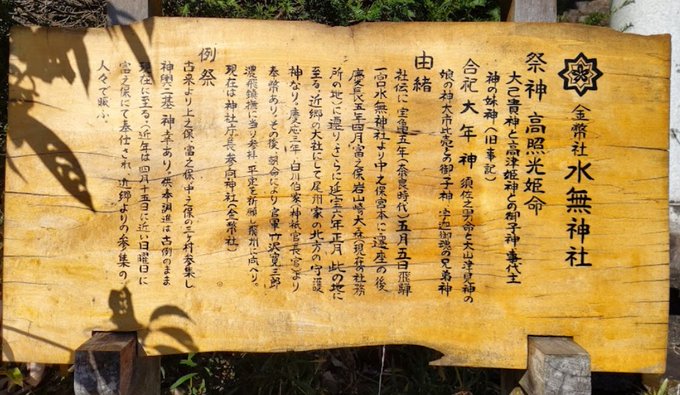 金幣社 水無神社
祭神 高照光姫命
大己貴神と高津姫神との御子神 事代主
神の妹神(旧事記)
合祀 大年神 須佐之男命と大山津見神の
娘の神大市比売との御子神 宇迦御魂の兄弟神
由緒
社伝に 宝亀五年(奈良時代)五月五日飛騨
一宮水無神社より中之保宮本に遷座の後
慶長五年四月富之保岩山崎大森(現在の社務
所の地)に遷り、さらに延宝六年正月 此の地に
至る、近郷の大社にして尾州家の北方の守護
神なり、慶応二年 白川伯家(神祇官長官)より
奉幣あり、その後、勅命により官軍竹沢寛三郎
濃飛鎮撫に当り参拝、平定を祈願
現在は神社庁長参向神社(金幣社)
例祭
古来より上之保、富之保、中之保の三ヶ村参集し
神輿二基 神幸あり、供奉調進は古例のまま
現在に至る、近年は四月十五日に近い日曜日に
富之保にて奉仕され、近郷よりの参集の
人々で賑ふ、